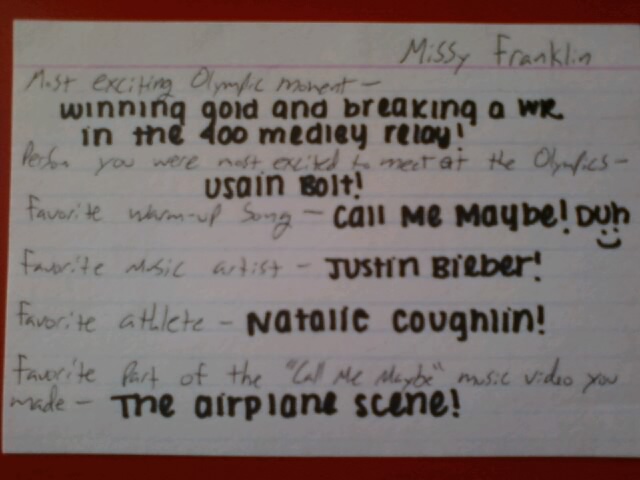 Missy Franklin
Most exciting Olympic moment -
winning gold and breaking a WR
in the 400 medley relay!
Person you were most excited to meet at the Olympics -
Usain Bolt!
Favorite warm-up song - Call Me Maybe! Duh
Favorite music artist - Justin Bieber!
Favorite athlete - Natalie Coughlin!
Favorite part of the "Call Me Maybe" music video you
made - The airplane scene!